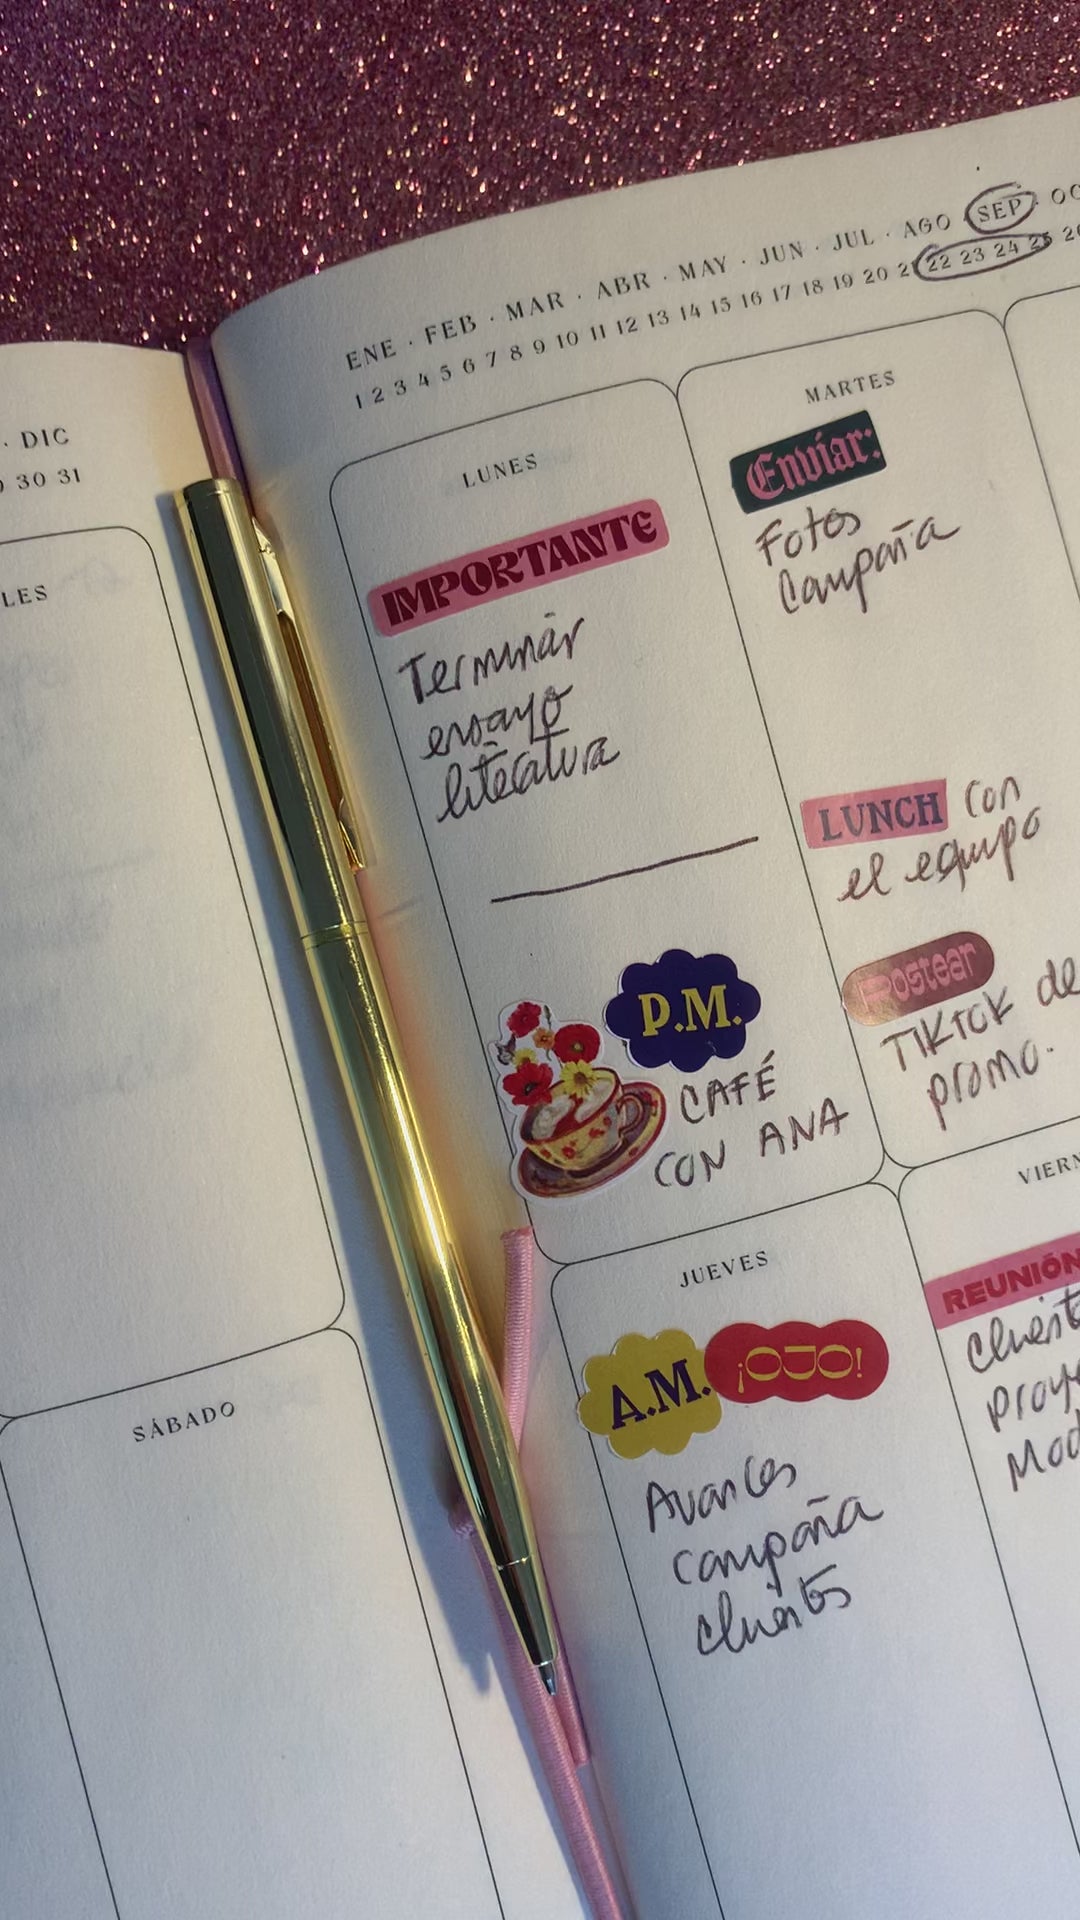 ENE · FEB · MAR · ABR · MAY · JUN · JUL · AGO · SEP · OC
1 2 3 4 5 6 7 8 9 10 11 12 13 14 15 16 17 18 19 20 21 22 23 24 25 26
· DIC
30 31
LES
SÁBADO
LUNES
IMPORTANTE
Terminar
ensayo
literatura
P.M.
CAFÉ
CON ANA
MARTES
Enviar:
Fotos
Campaña
LUNCH con
el equipo
Postear
TIKTOK de
promo.
JUEVES
A.M. ¡OJO!
Avances
campaña
clientes
VIERN
REUNIÓN
client
proye
Mod